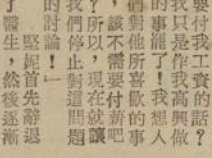 要付我工資的話？
我只是作我高興做
的事罷了！我想人
們對他所喜歡的事
，該不需要付薪吧
？所以，現在就讓
我們停止對這問題
的討論！」
堅妮首先辭退
了醫生，然後逐漸